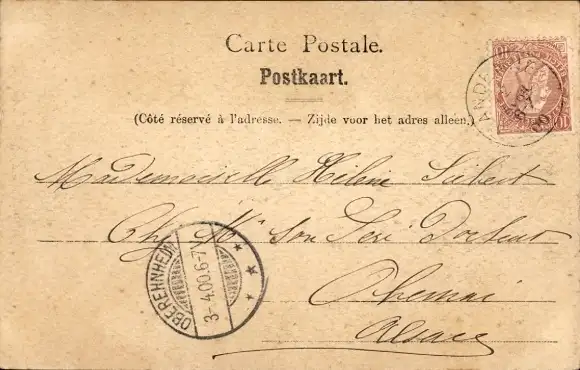 Carte Postale.
Postkaart.
(Côté réservé à l'adresse. — Zijde voor het adres alleen.)
Mademoiselle Hélène Seibert
Chez Mr son Docteur
Obernai
Alsace
OBEREHNHEIM
3.4.00.6-7
ANDE
10 10